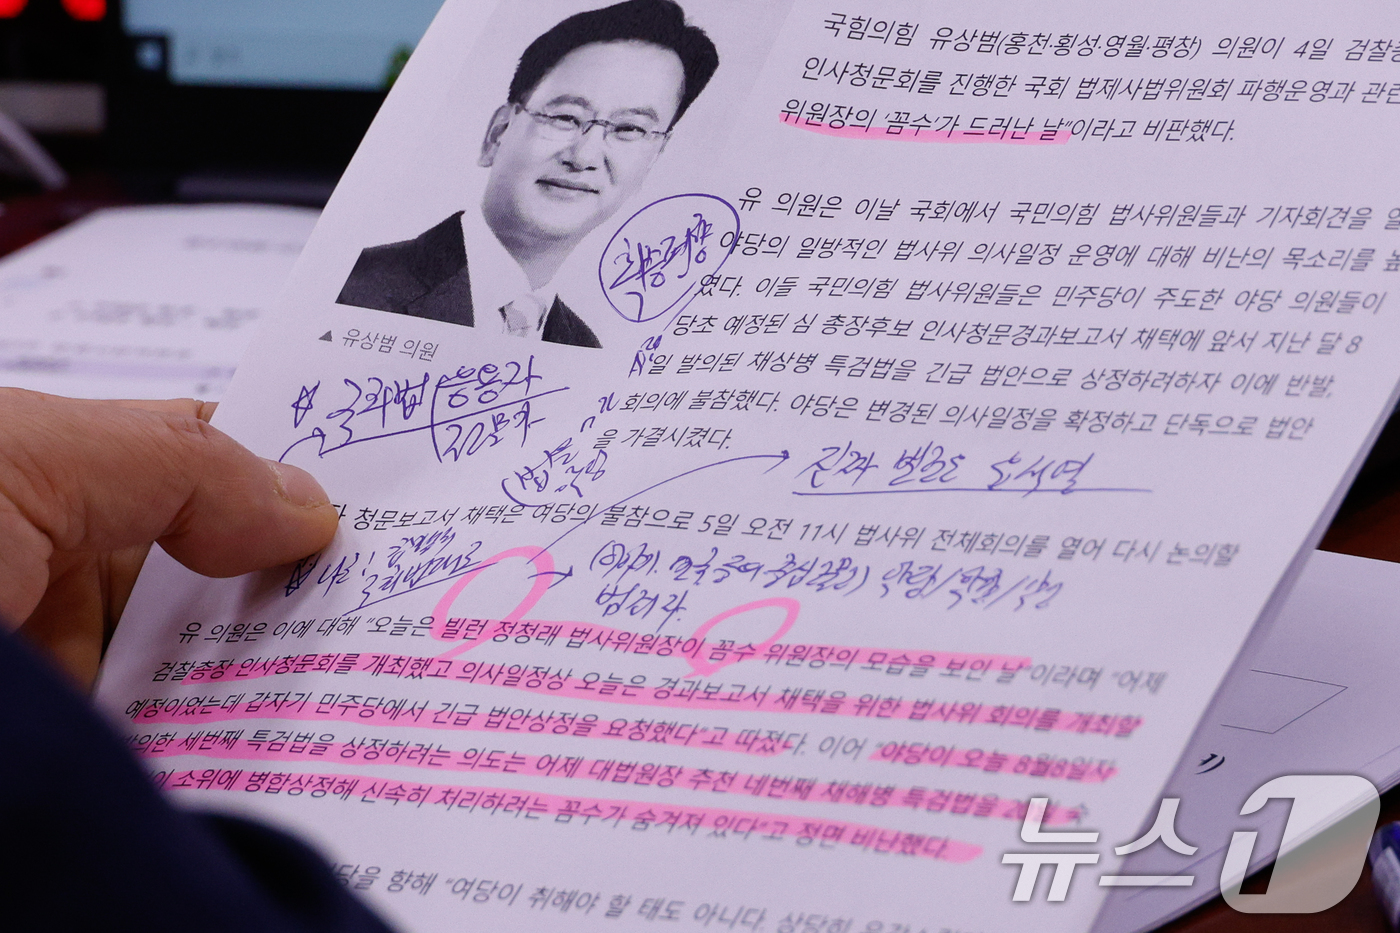 국힘의힘 유상범(홍천·횡성·영월·평창) 의원이 4일 검찰총
인사청문회를 진행한 국회 법제사법위원회 파행운영과 관련
위원장의 '꼼수'가 드러난 날"이라고 비판했다.
유 의원은 이날 국회에서 국민의힘 법사위원들과 기자회견을 열
야당의 일방적인 법사위 의사일정 운영에 대해 비난의 목소리를 높
였다. 이들 국민의힘 법사위원들은 민주당이 주도한 야당 의원들이
당초 예정된 심 총장후보 인사청문경과보고서 채택에 앞서 지난 달 8
일 발의된 채상병 특검법을 긴급 법안으로 상정하려하자 이에 반발,
회의에 불참했다. 야당은 변경된 의사일정을 확정하고 단독으로 법안
을 가결시켰다.
▲ 유상범 의원
국회법
진짜 빌런은 윤석열
청문보고서 채택은 여당의 불참으로 5일 오전 11시 법사위 전체회의를 열어 다시 논의할
국회법대로
유 의원은 이에 대해 "오늘은 빌런 정청래 법사위원장이 꼼수 위원장의 모습을 보인 날"이라며 "어제
검찰총장 인사청문회를 개최했고 의사일정상 오늘은 경과보고서 채택을 위한 법사위 회의를 개최할
예정이었는데 갑자기 민주당에서 긴급 법안상정을 요청했다"고 따졌다. 이어 "야당이 오늘 8월8일자
발의한 세번째 특검법을 상정하려는 의도는 어제 대법원장 추천 네번째 채해병 특검법을 20일 숙
소위에 병합상정해 신속히 처리하려는 꼼수가 숨겨져 있다"고 정면 비난했다.
당을 향해 "여당이 취해야 할 태도 아니다. 상당히
1)
뉴스1